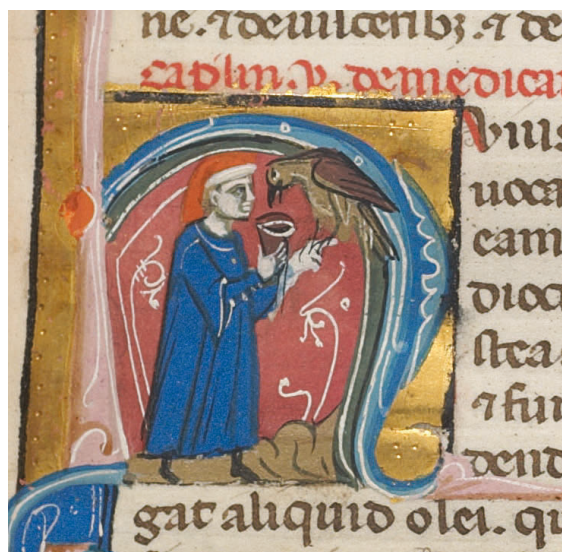 ne. ⁊ de uisceribꝫ. ⁊ de
cap̄lm̄. v. de medica
Auis
uoca
cam
dioc
stea
⁊ fur
dend
gat aliquid olei. qu